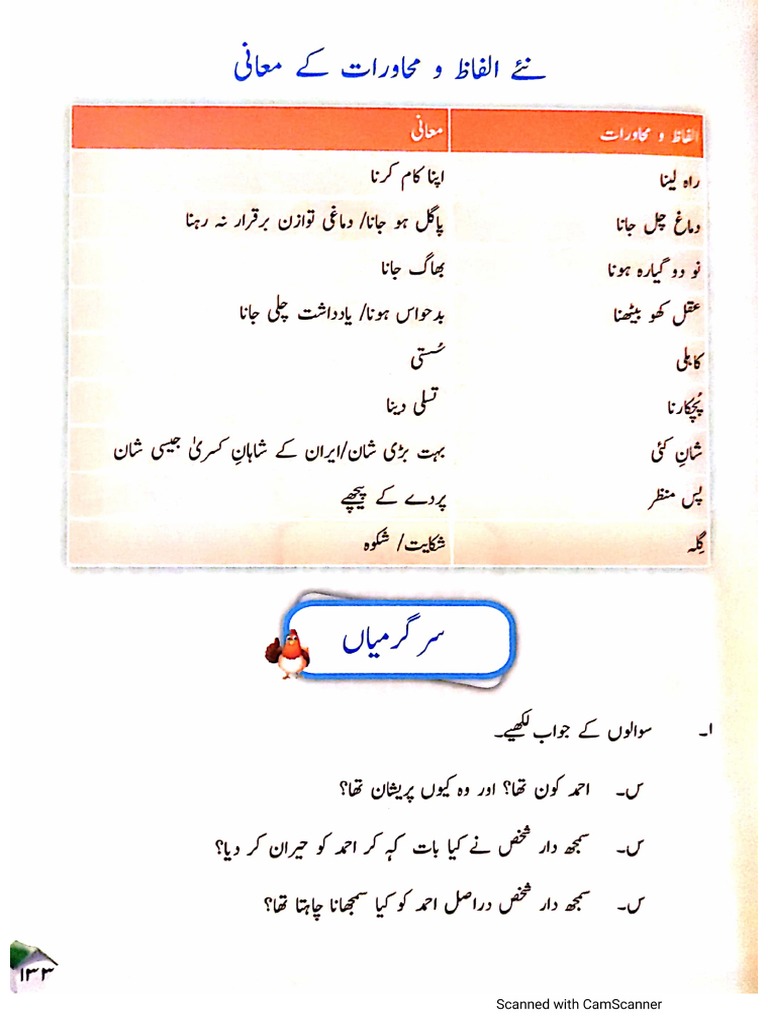 نئے الفاظ و محاورات کے معانی
الفاظ و محاورات معانی
راہ لینا اپنا کام کرنا
دماغ چل جانا پاگل ہو جانا/ دماغی توازن برقرار نہ رہنا
نو دو گیارہ ہونا بھاگ جانا
عقل کھو بیٹھنا بدحواس ہونا/ یادداشت چلی جانا
کاہلی سُستی
پُچکارنا تسلی دینا
شانِ کئی بہت بڑی شان/ایران کے شاہانِ کسریٰ جیسی شان
پس منظر پردے کے پیچھے
گِلہ شکایت/ شکوہ
سرگرمیاں
ا۔ سوالوں کے جواب لکھیے۔
س۔ احمد کون تھا؟ اور وہ کیوں پریشان تھا؟
س۔ سمجھ دار شخص نے کیا بات کہہ کر احمد کو حیران کر دیا؟
س۔ سمجھ دار شخص دراصل احمد کو کیا سمجھانا چاہتا تھا؟
۱۳۳
Scanned with CamScanner